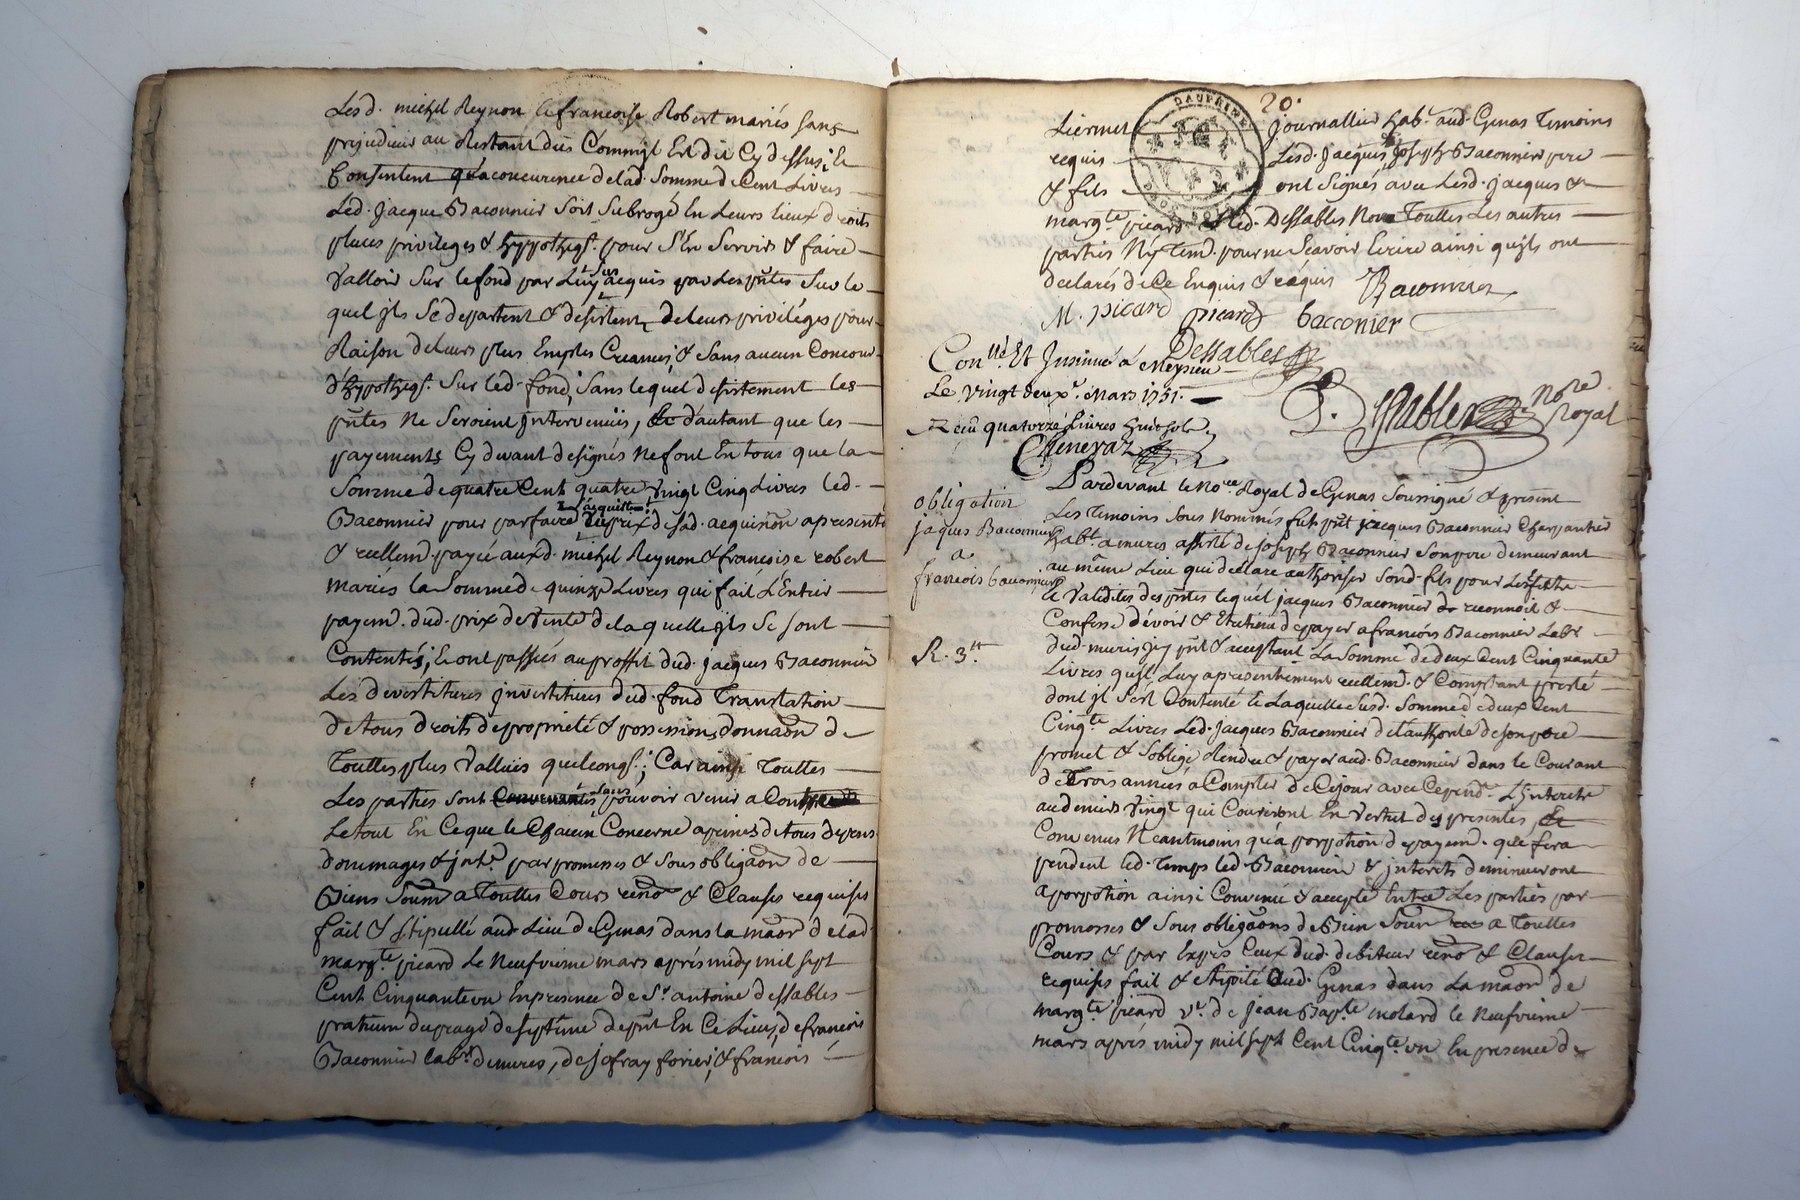 Lesd. michel Reynon & francoise Robert mariés sans
prejudicier au Restant dus Comm'jl Est dit Cy dessus; &
Consentent qu'a concurrence de lad. Somme de Cent Livres
Led. Jacque Baconnier Soit Subrogé En Leurs lieux droits
places privileges & hyppotheqs. pour S'En Servir & faire
Valloir Sur le fond par Luy sus acquis par Les pntes Sur le
quel jls Se departent & desistent de leurs privilèges pour
Raison de leurs plus Emples Creances, & Sans aucun Concour
d'hypotheqs. Sur led. fond, Sans lequel desistement les
pntes Ne Seroient jntervenües, d'autant que les
payements Cy devant designés Ne font En tous que la
Somme de quatre Cent quatre Vingt Cinq Livres led.
Baconnier pour parfaire acquittem. du prix de sad. acquison a presente
& reellemt. payée auxd. michel Reynon & francoise robert
mariés la Somme de quinze Livres qui fait L'Entier
payem. dud. prix de Vente de laquelle jls Se Sont
Contentés; & ont passés au proffit dud. jacques Baconnier
Les devestitures jnvestitures dud. fond Translation
de tous droits de propriété & possession, donnaon de
Touttes plus Vallües quelconqs.; Car ainsi Touttes
Les parties Sont sans pouvoir venir a
Le tout En Ce que le Chacun Concerne a peines de tous depens
dommages & jnts. par promesses & Sous obligaon de
Biens Soum a Touttes Cours reno & Clauses requises
fait & stipullé aud. Lieu de Genas dans la maon de lad.
margte. picard Le Neufvieme mars après midy mil sept
Cent Cinquante un En presence de Sr. antoine dessables
praticien du de septeme depnt En Ce Lieu, de francois
Baconnier labr. de mures, de jofray forier, & francois
20.
DAUPHINÉ
Liermet journallier hab. aud. Genas Temoins
requis Lesd. Jacques Joseph Baconnier pere
& fils ont Signés avec Lesd. jacques &
margte. picard & led. Dessables Non Touttes Les autres
parties Ny Tem. pour ne Scavoir Ecrire ainsi qu'jls ont
declarés de Ce Enquis & requis Baconnier
M. picard picard bacconier
Dessables
Conllé. Et Jnsinué à Meysieu
Le Vingt deuxe. Mars 1751.
Reçu quatorze Livres huit sols
Chenevaz
D. Dessables Nore. Royal
obligation
jaques Baconnier
a
francois baconnier
R. 3tt.
Pardevant le Nore. Royal de Genas Soussigné & present
Les Temoins Sous Nommés fut pnt jacques Baconnier Charpantier
habt. a mures assisté de joseph Baconnier Son pere demeurant
au même Lieu qui declare authoriser Sond. fils pour
& Validites des pntes lequel jacques Baconnier reconnoit &
Confesse dévoir & Etre tenu de payer a francois Baconnier Labr
dud. mures jcy pnt & acceptant La Somme de deux Cent Cinquante
Livres qu'il Luy a presentement reellemt. & Comptant presté
dont jl S'est Contenté & Laquelle Susd. Somme de deux Cent
Cinqte. Livres Led. Jacques Baconnier de l'authorité de son pere
promet & s'oblige Rendre & payer aud. Baconnier dans le Courant
de Trois années a Compter de Cejour avec Cepend. L'jnterets
au deniers Vingt qui Coureront En Vertu des presentes
Convenus Neantmoins qu'a porpotion de payem. que fera
pendent led. Temps led. Baconnier & jnterets diminueront
a porpotion ainsi Convenu & accepté Entre Les parties par
promesses & Sous obligaons de Bien Soum a Touttes
Cours & par Expres Ceux dud. debiteur reno & Clauses
requises fait & stipulé aud. Genas dans La maon de
margte. picard Ve. de Jean Bapte. molard le Neufvieme
mars après midy mil sept Cent Cinqte. un En presence de